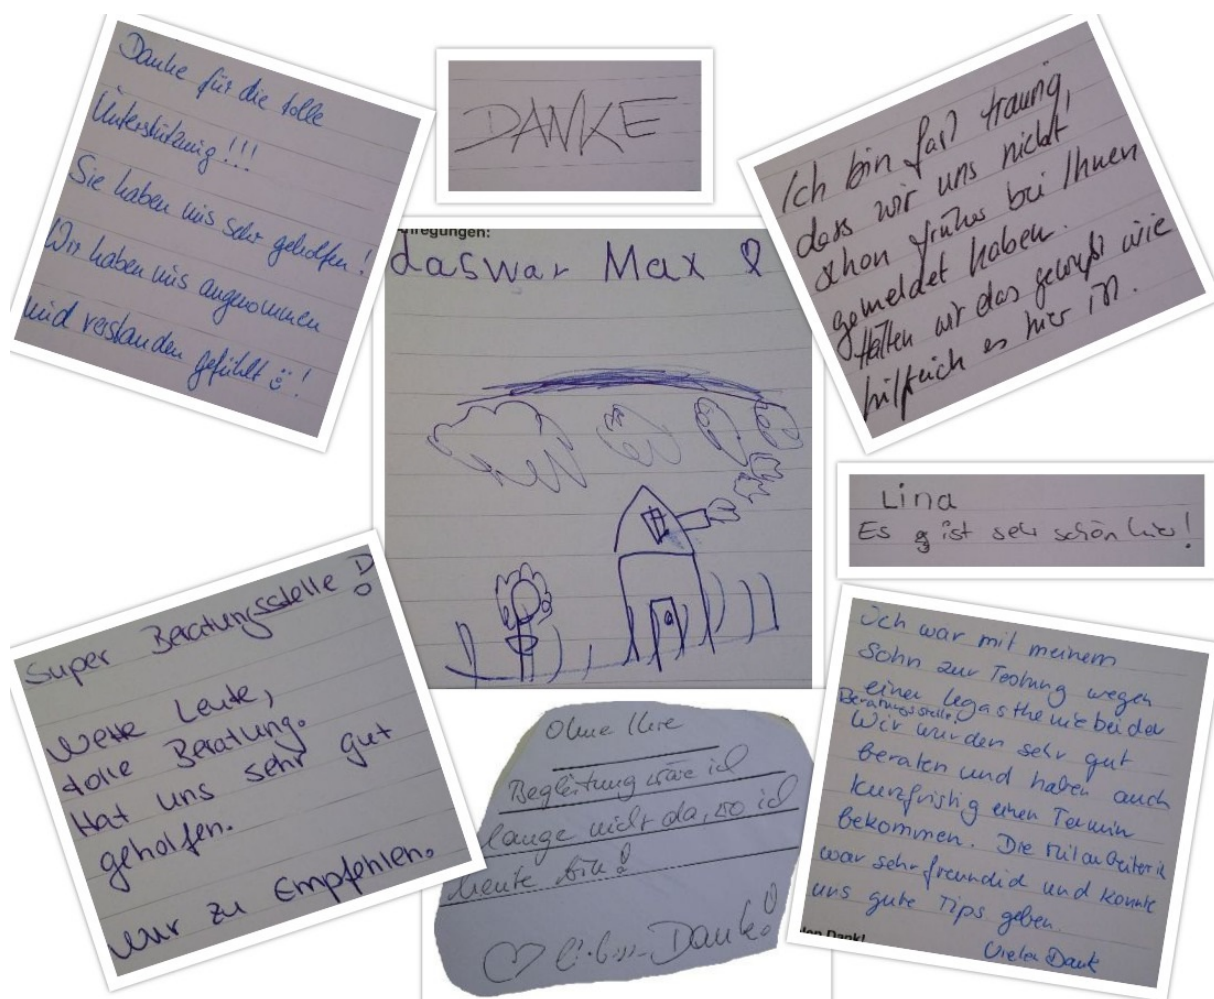 Danke für die tolle
Unterstützung!!!
Sie haben uns sehr geholfen!
Wir haben uns angenommen
und verstanden gefühlt !
DANKE
Ich bin fast traurig,
dass wir uns nicht
schon früher bei Ihnen
gemeldet haben.
Hätten wir das gewußt wie
hilfreich es hier ist.
nregungen:
das war Max
Lina
Es ist sehr schön hier!
Super Beratungsstelle
Nette Leute,
tolle Beratung.
Hat uns sehr gut
geholfen.
Nur zu Empfehlen.
Ohne Ihre
Begleitung wäre ich
lange nicht da, wo ich
heute bin!
Dank!
Ich war mit meinem
Sohn zur Testung wegen
einer Legasthenie bei der
Beratungsstelle.
Wir wurden sehr gut
beraten und haben auch
kurzfristig einen Termin
bekommen. Die Mitarbeiterin
war sehr freundlich und konnte
uns gute Tips geben.
len Dank!
Vielen Dank